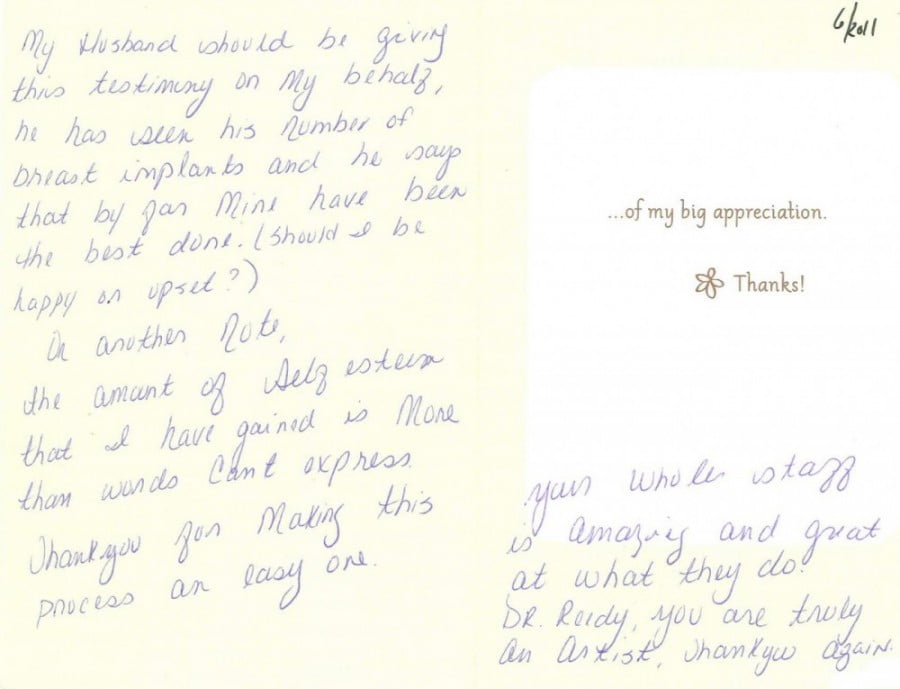 My Husband should be giving
this testimony on My behalf,
he has seen his number of
breast implants and he says
that by far Mine have been
the best done. (should I be
happy or upset?)
On another Note,
the amount of Self esteem
that I have gained is More
than words Can't express.
Thankyou for Making this
process an easy one.
6/2011
...of my big appreciation.
Thanks!
your whole staff
is amazing and great
at what they do.
DR. Reidy, you are truly
An Artist, Thankyou Again.